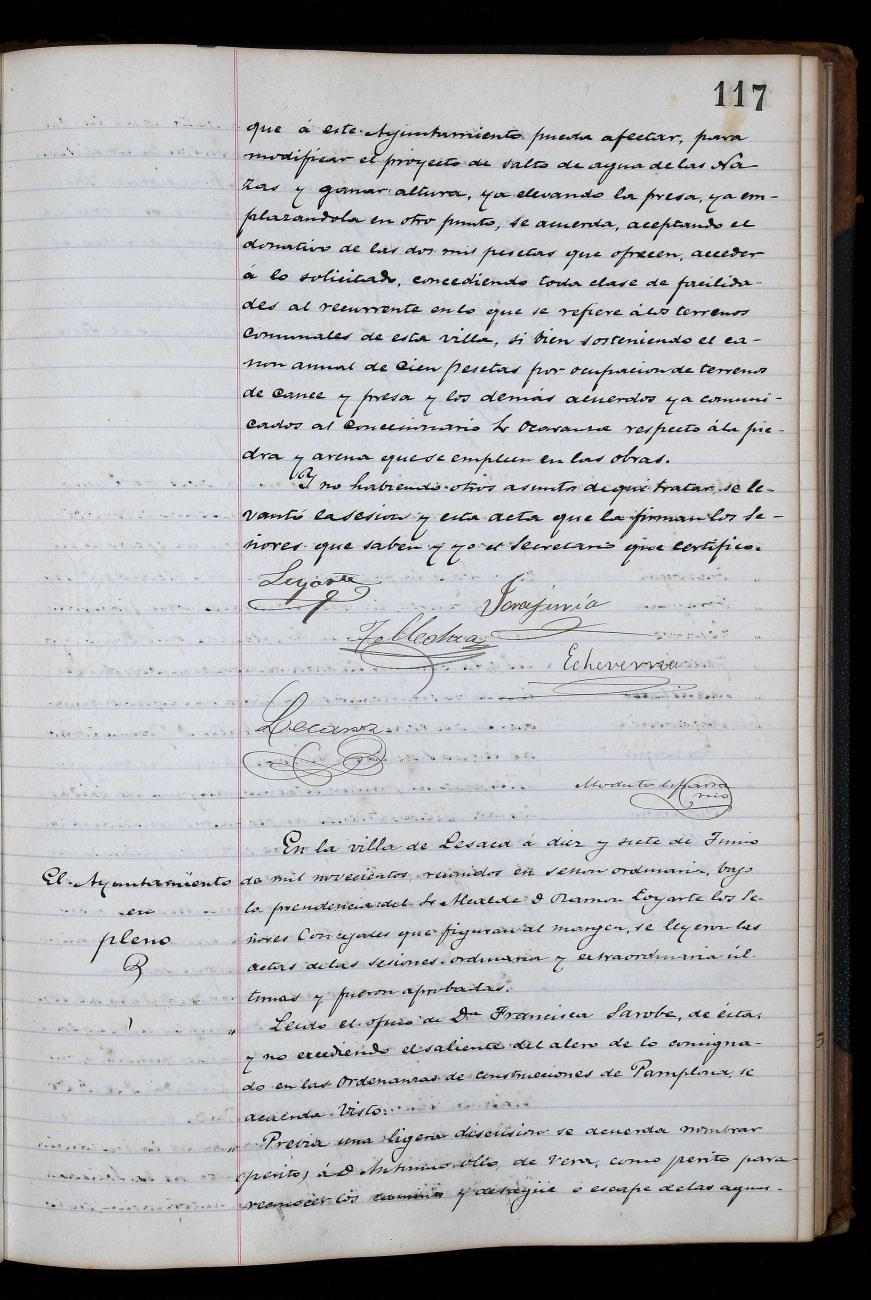 117
que á este Ayuntamiento pueda afectar, para
modificar el proyecto de salto de agua de las Na-
zas y ganar altura, ya elevando la presa, ya em-
plazandola en otro punto, se acuerda, aceptando el
donativo de las dos mil pesetas que ofrecen, acceder
á lo solicitado, concediendo toda clase de facilida-
des al recurrente en lo que se refiere á los terrenos
comunales de esta villa, si bien sosteniendo el ca-
non anual de cien pesetas por ocupacion de terrenos
de cauce y presa y los demás acuerdos ya comuni-
cados al concecionario Sr Ocaranza respecto á la pie-
dra y arena que se empleen en las obras.
Y no habiendo otros asuntos de que tratar, se le-
vantó la sesion y esta acta que la firman los Se-
ñores que saben y yo el Secretario que certifico.
Loyarte
Echeverria
Lecaroz
Modesto
En la villa de Lesaca á diez y siete de Junio
de mil novecientos, reunidos en sesion ordinaria, bajo
la presidencia del Sr Alcalde D Ramon Loyarte los Se-
ñores Concejales que figuran al margen, se lleyeron las
actas de las sesiones ordinaria y extraordinaria úl-
timas y fueron aprobadas.
El Ayuntamiento
en
pleno
" Leido el oficio de Dña Francisca Sarobe, de ésta,
y no excediendo el saliente del alero de lo consigna-
do en las Ordenanzas de construcciones de Pamplona, se
acuerda Visto.
" Previa una ligera discusion se acuerda nombrar
(perito) á D Antonino Ollo, de Vera, como perito para
reconocer los caminos y desagüe ó escape de las aguas